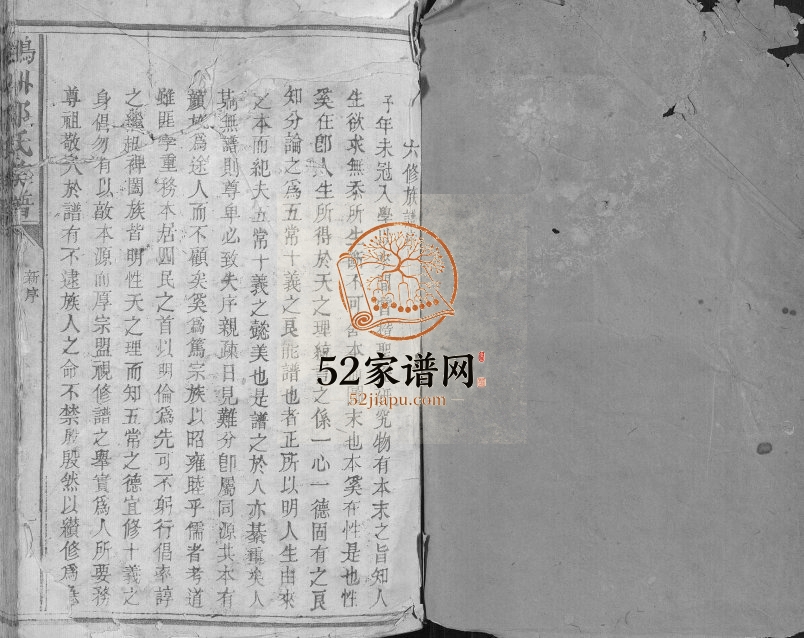 六修族譜序
予年未冠入學 物有本末之旨知人
生欲求無忝所生 不可 本 末也本奚在性是也性
奚在卽人生所得於天之理 之係一心一德固有之良
知分論之爲五常十義之良能譜也者正所以明人生由來
之本而紀夫五常十義之懿美也是譜之於人亦綦重矣人
苟無譜則尊卑必致失序親疎日見難分卽屬同源共本有
顏族爲途人而不顧矣奚爲篤宗族以昭雍睦乎儒者考道
雖匪孚重務本居四民之首以明倫爲先可不躬行倡率諄
之 闔族皆明性天之理而知五常之德宜修十義之
身倡勿有以敵本源而厚宗盟視修譜之舉實爲人所要務
尊祖敬宗於譜有不逮族人之命不禁殷殷然以纘修爲
氏族譜
新序
52家谱网
52jiapu.com